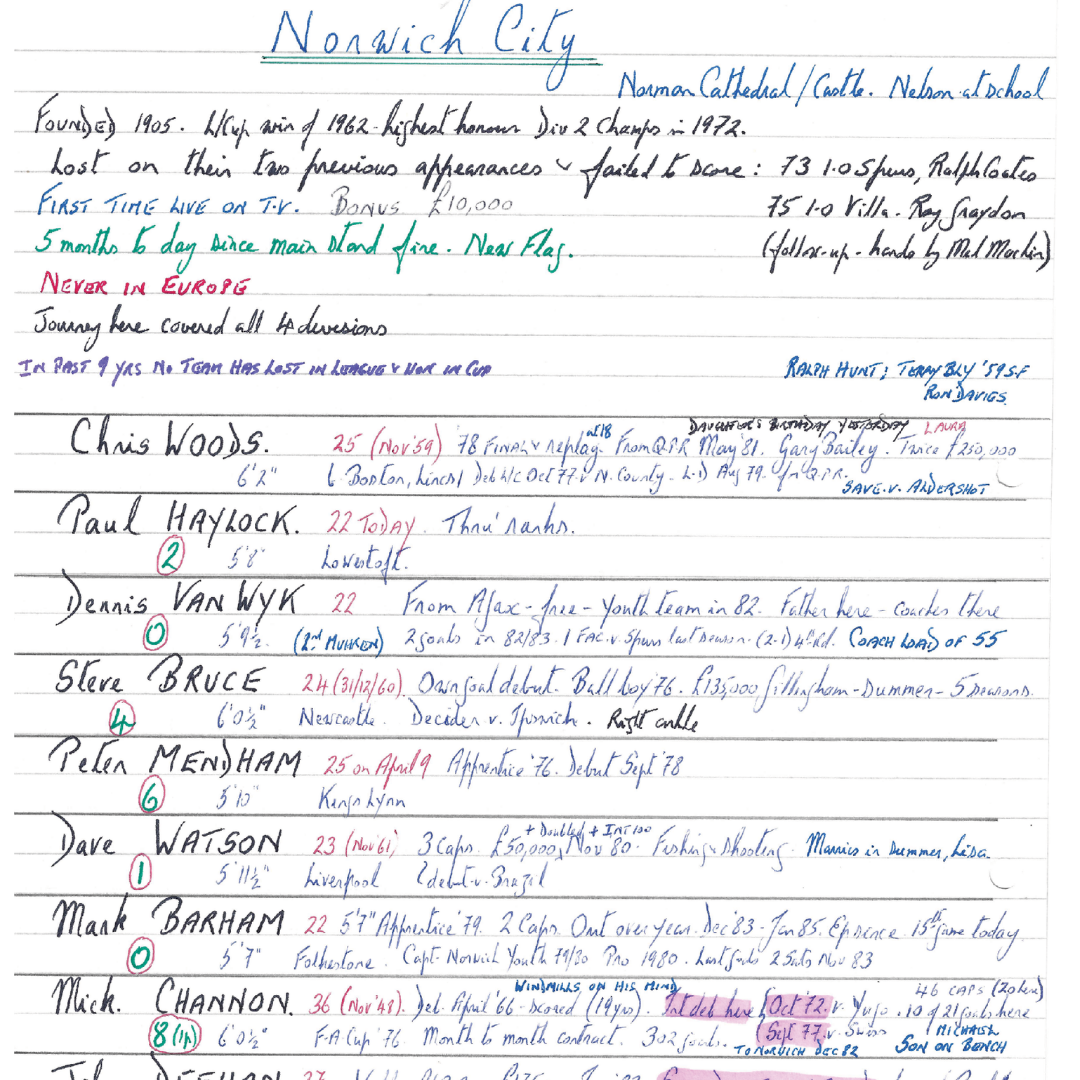 Norwich City
Norman Cathedral / Castle. Nelson at school
FOUNDED 1905. L/Cup win of 1962 - highest honour Div 2 Champs in 1972.
Lost on their two previous appearances & failed to score: 73 1.0 Spurs, Ralph Coates
FIRST TIME LIVE ON T.V. BONUS £10,000 75 1.0 Villa. Ray Graydon
5 months to day since main stand fire. New Flag. (follow-up - hands by Mel Machin)
NEVER IN EUROPE
Journey here covered all 4 divisions
IN PAST 9 YRS NO TEAM HAS LOST IN LEAGUE & WON IN CUP RALPH HUNT; TERRY BLY '59 S.F
RON DAVIES.
DAUGHTER'S BIRTHDAY YESTERDAY LAURA
Chris WOODS. 25 (Nov '59) '78 FINAL & replay at 18 From Q.P.R May '81. Gary Bailey. Twice £250,000
6'2" b. Boston, Lincs Deb L/C Oct 77 v N. County. L.D Aug 79. for Q.P.R.
SAVE. v. ALDERSHOT
Paul HAYLOCK. 22 TODAY. Thru' ranks.
2 5'8" Lowestoft.
Dennis VAN WYK 22 From Ajax - free - Youth team in 82. Father here - coaches there
0 5'9½. (2nd MUHREN) 2 goals in 82/83. 1 FAC. v. Spurs last season. (2-1) 4th Rd. COACH LOAD OF 55
Steve BRUCE 24 (31/12/60). Own goal debut. Ball boy '76. £135,000 Gillingham - Summer - 5 seasons.
4 6'0½" Newcastle. Decider v. Ipswich. Right ankle
Peter MENDHAM 25 on April 9 Apprentice '76. Debut Sept '78
6 5'10" Kings Lynn
+ Doubled + INT 100
Dave WATSON 23 (Nov '61) 3 Caps. £50,000, Nov 80. Fishing & shooting. Marries in summer, Lisa.
1 5'11½" Liverpool debut v. Brazil
Mark BARHAM 22 5'7" Apprentice '79. 2 Caps. Out over year. Dec '83 - Jan 85. 15th game today
0 5'7" Folkestone. Capt. Norwich Youth 79/80 Pro 1980. Last goals 2 Nov 83
WINDMILLS ON HIS MIND 46 CAPS (20 here)
Mick. CHANNON. 36 (Nov '48). Deb. April '66 - scored (19 yrs). Int deb here Oct '72. v. Yugo. 10 of 21 goals here
8 (1p) 6'0½" F.A Cup '76. Month to month contract. 302 goals. (Sept 77. v. Swiss MICHAEL
TO NORWICH DEC 82 SON ON BENCH
DEEHAN 27